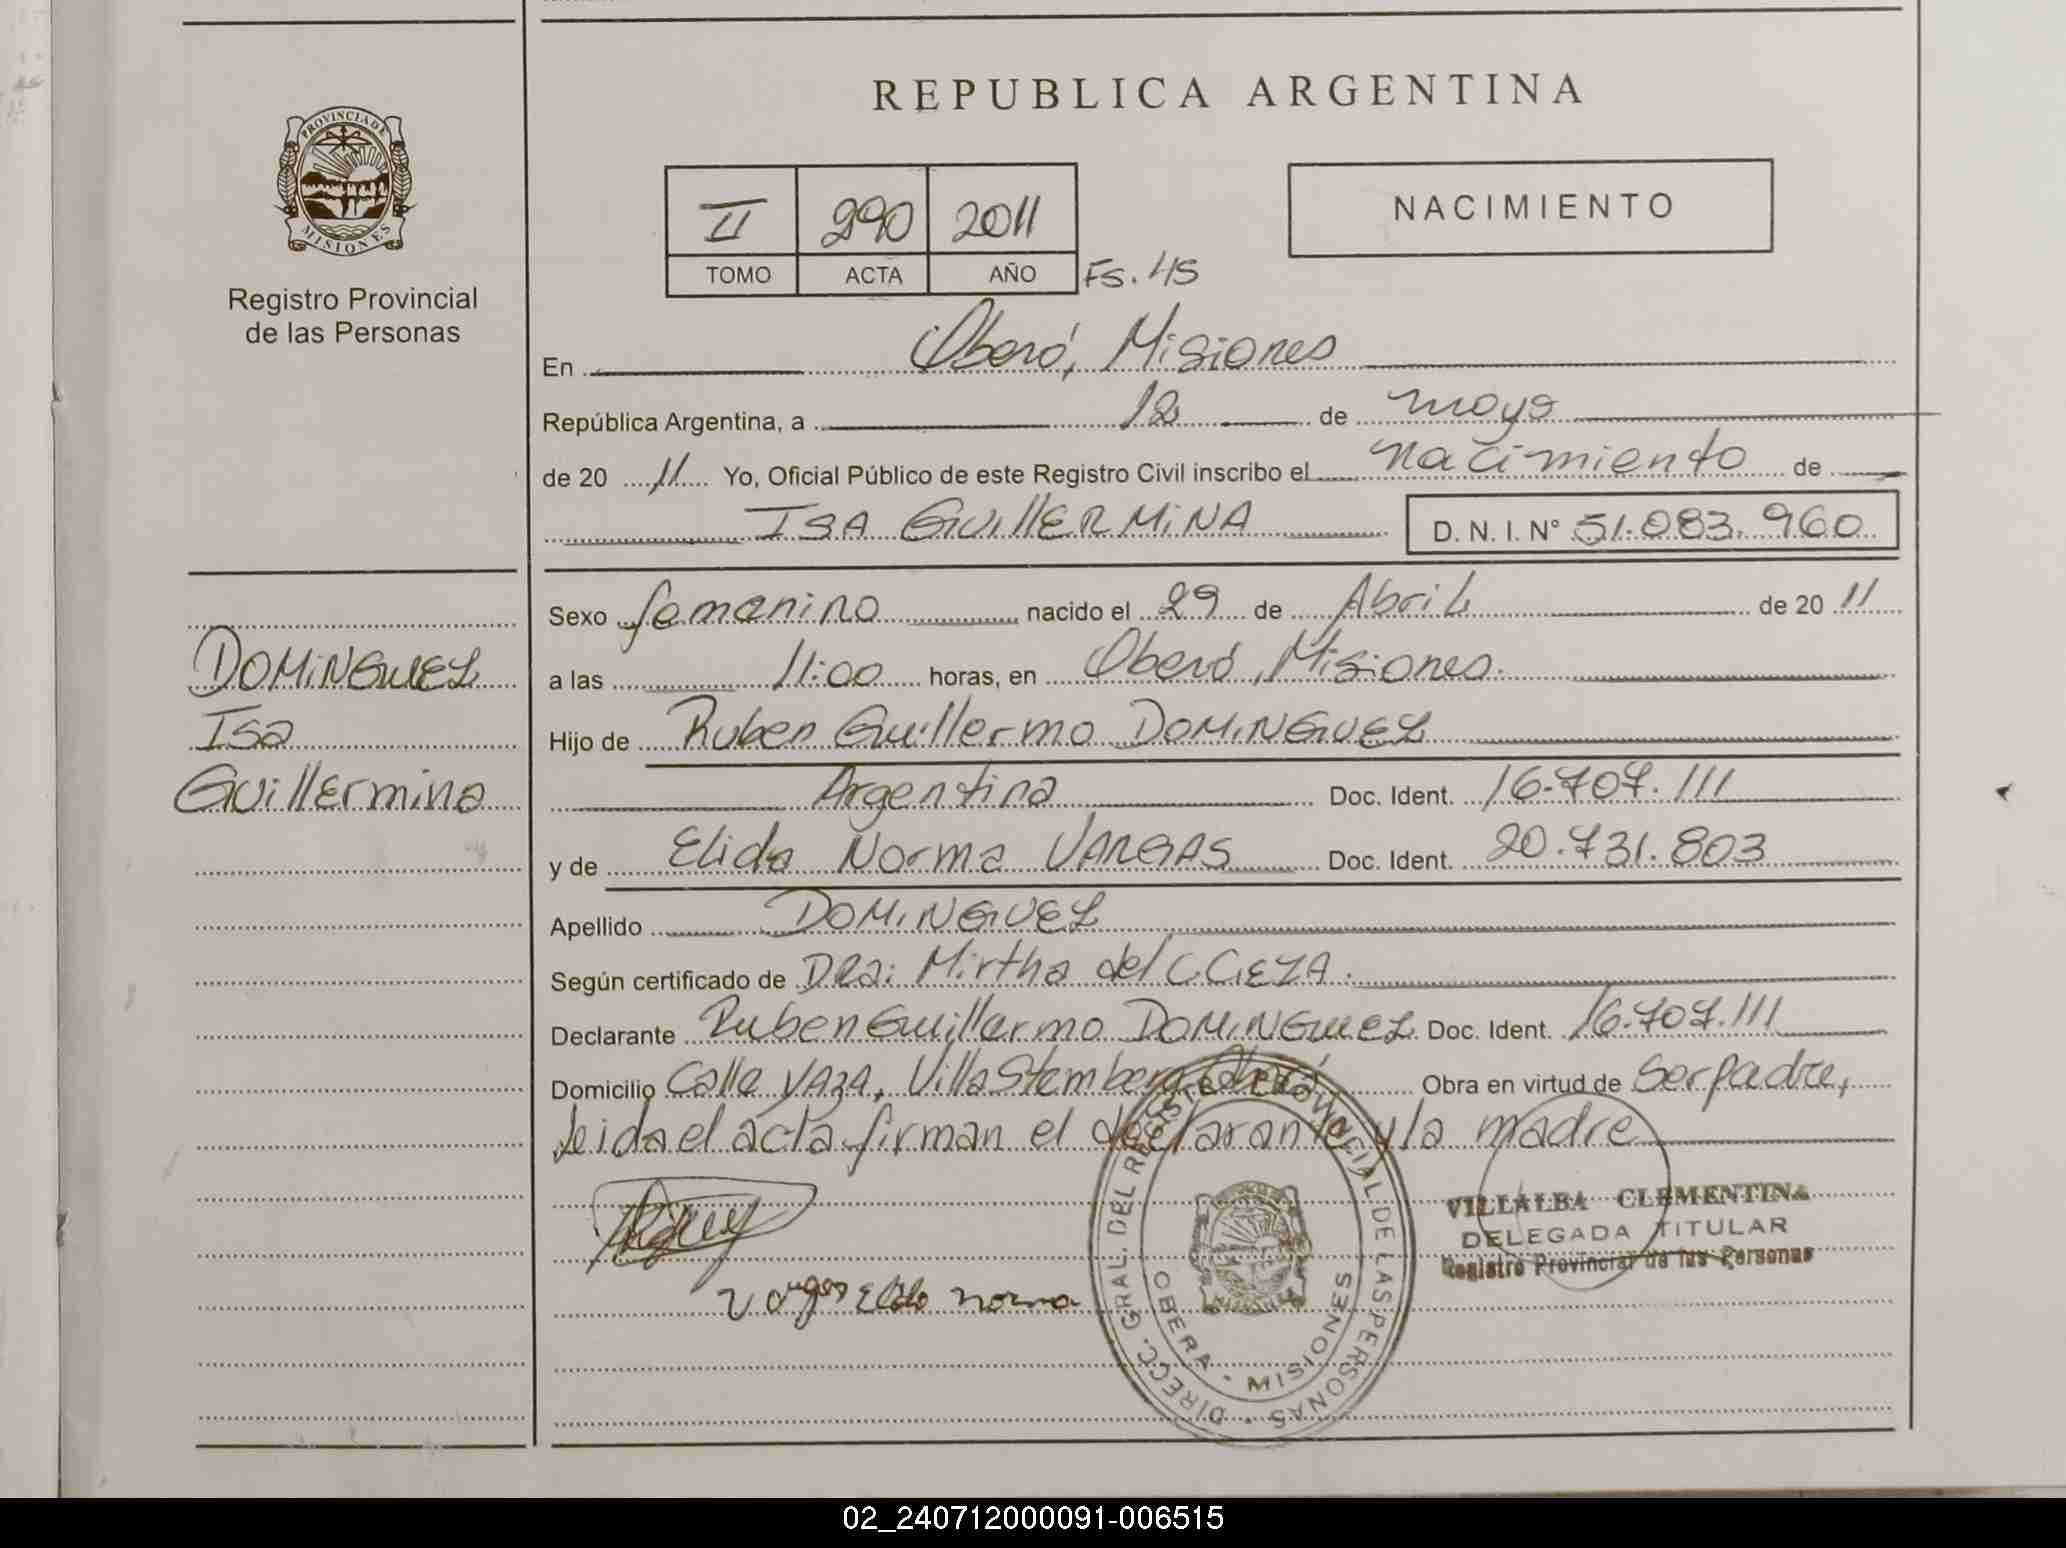 REPUBLICA ARGENTINA
PROVINCIA DE
MISIONES
Registro Provincial
de las Personas
II 290 2011
TOMO ACTA AÑO Fs. 45
NACIMIENTO
En Oberá, Misiones
República Argentina, a 12 de mayo
de 20 11 Yo, Oficial Público de este Registro Civil inscribo el nacimiento de
ISA GUILLERMINA D. N. I. N° 51.083.960
Sexo femenino nacido el 29 de Abril de 20 11
DOMINGUEZ
Isa
Guillermina
a las 11:00 horas, en Oberá, Misiones.
Hijo de Ruben Guillermo DOMINGUEZ
Argentina Doc. Ident. 16.707.111
y de Elida Norma VARGAS Doc. Ident. 20.731.803
Apellido DOMINGUEZ
Según certificado de Dra: Mirtha del C. CIEZA.
Declarante Ruben Guillermo DOMINGUEZ Doc. Ident. 16.707.111
Domicilio Calle YAZA, Villa Stemberg, Oberá Obra en virtud de Ser padre,
Leida el acta firman el declarante y la madre
Vargas Elida Norma
DIRECC. GRAL. DEL REGISTRO PROVINCIAL DE LAS PERSONAS
OBERA - MISIONES
VILLALBA CLEMENTINA
DELEGADA TITULAR
Registro Provincial de las Personas
02_240712000091-006515